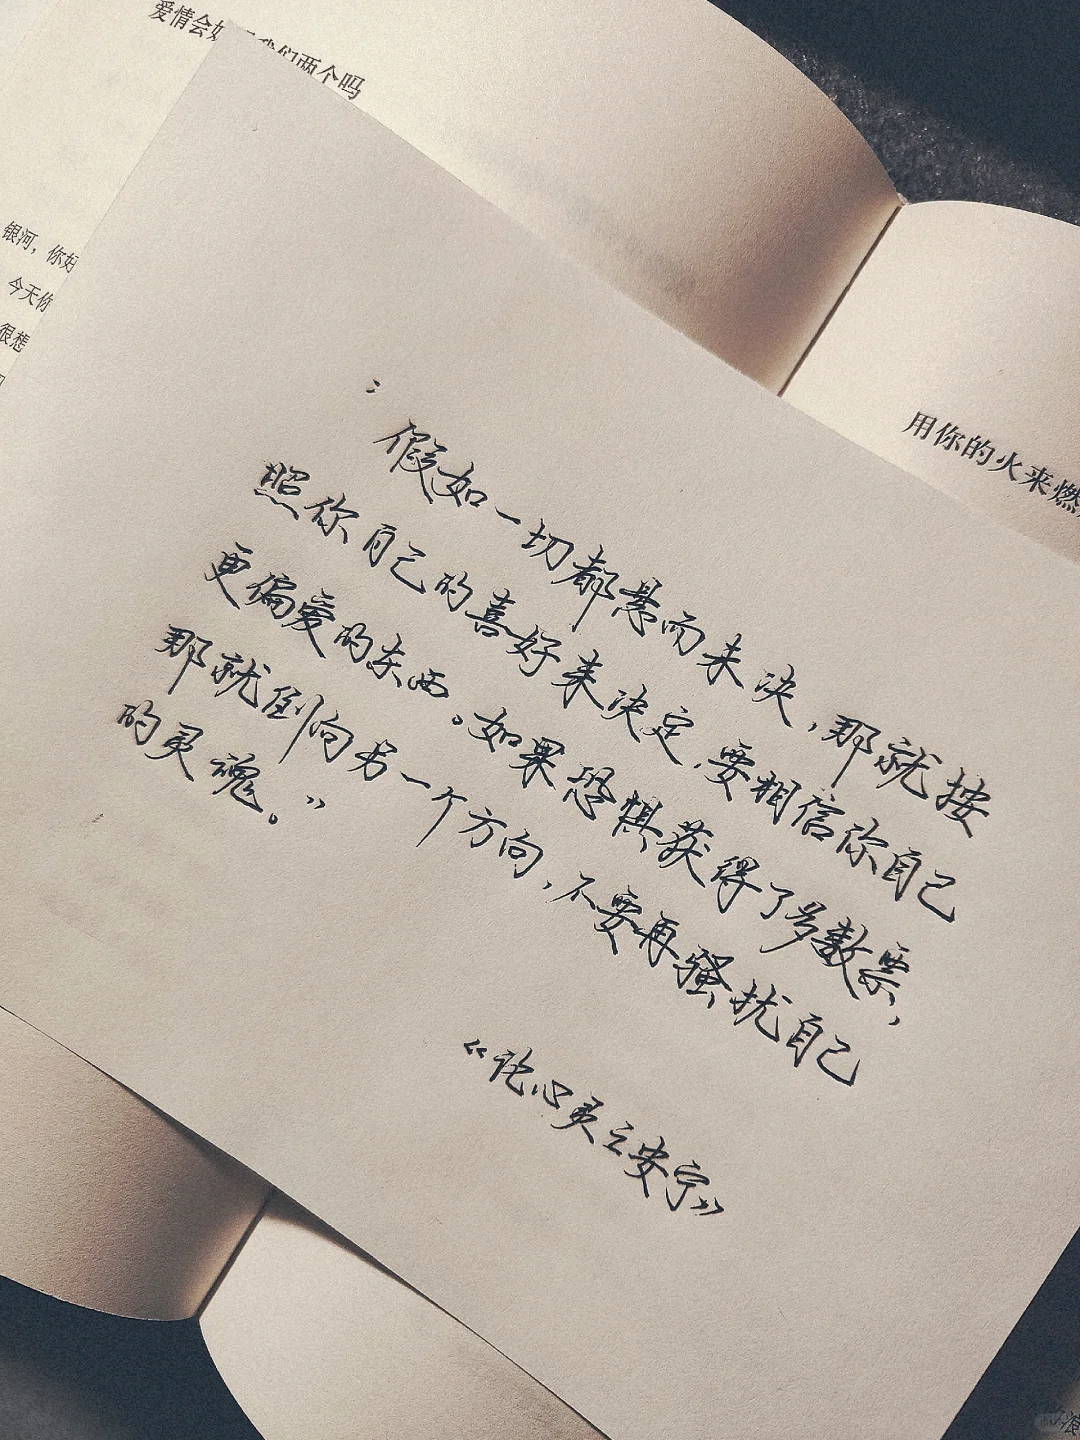 爱情会如
我们两个吗
银河，你好
今天你
很想
用你的火来燃
“假如一切都悬而未决，那就按
照你自己的喜好来决定，要相信你自己
更偏爱的东西。如果恐惧获得了多数票，
那就倒向另一个方向，不要再骚扰自己
的灵魂。”
《论心灵之安宁》